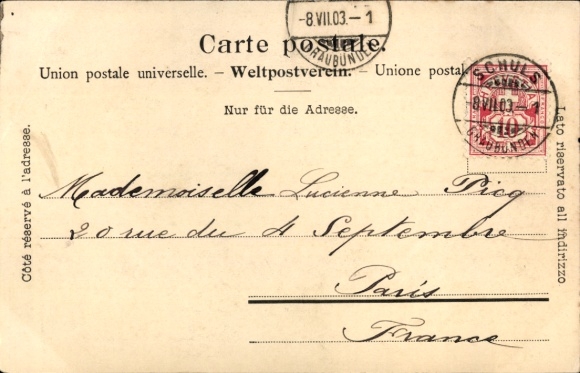 -8.VII.03.-1
GRAUBÜNDEN
Carte postale.
Union postale universelle. – Weltpostverein. – Unione postal
Nur für die Adresse.
SCHULS
-8.VII.03.-1
GRAUBÜNDEN
10
Côté réservé à l'adresse.
Lato riservato all indirizzo
Mademoiselle Lucienne Picq
20 rue du 4 Septembre
Paris
France